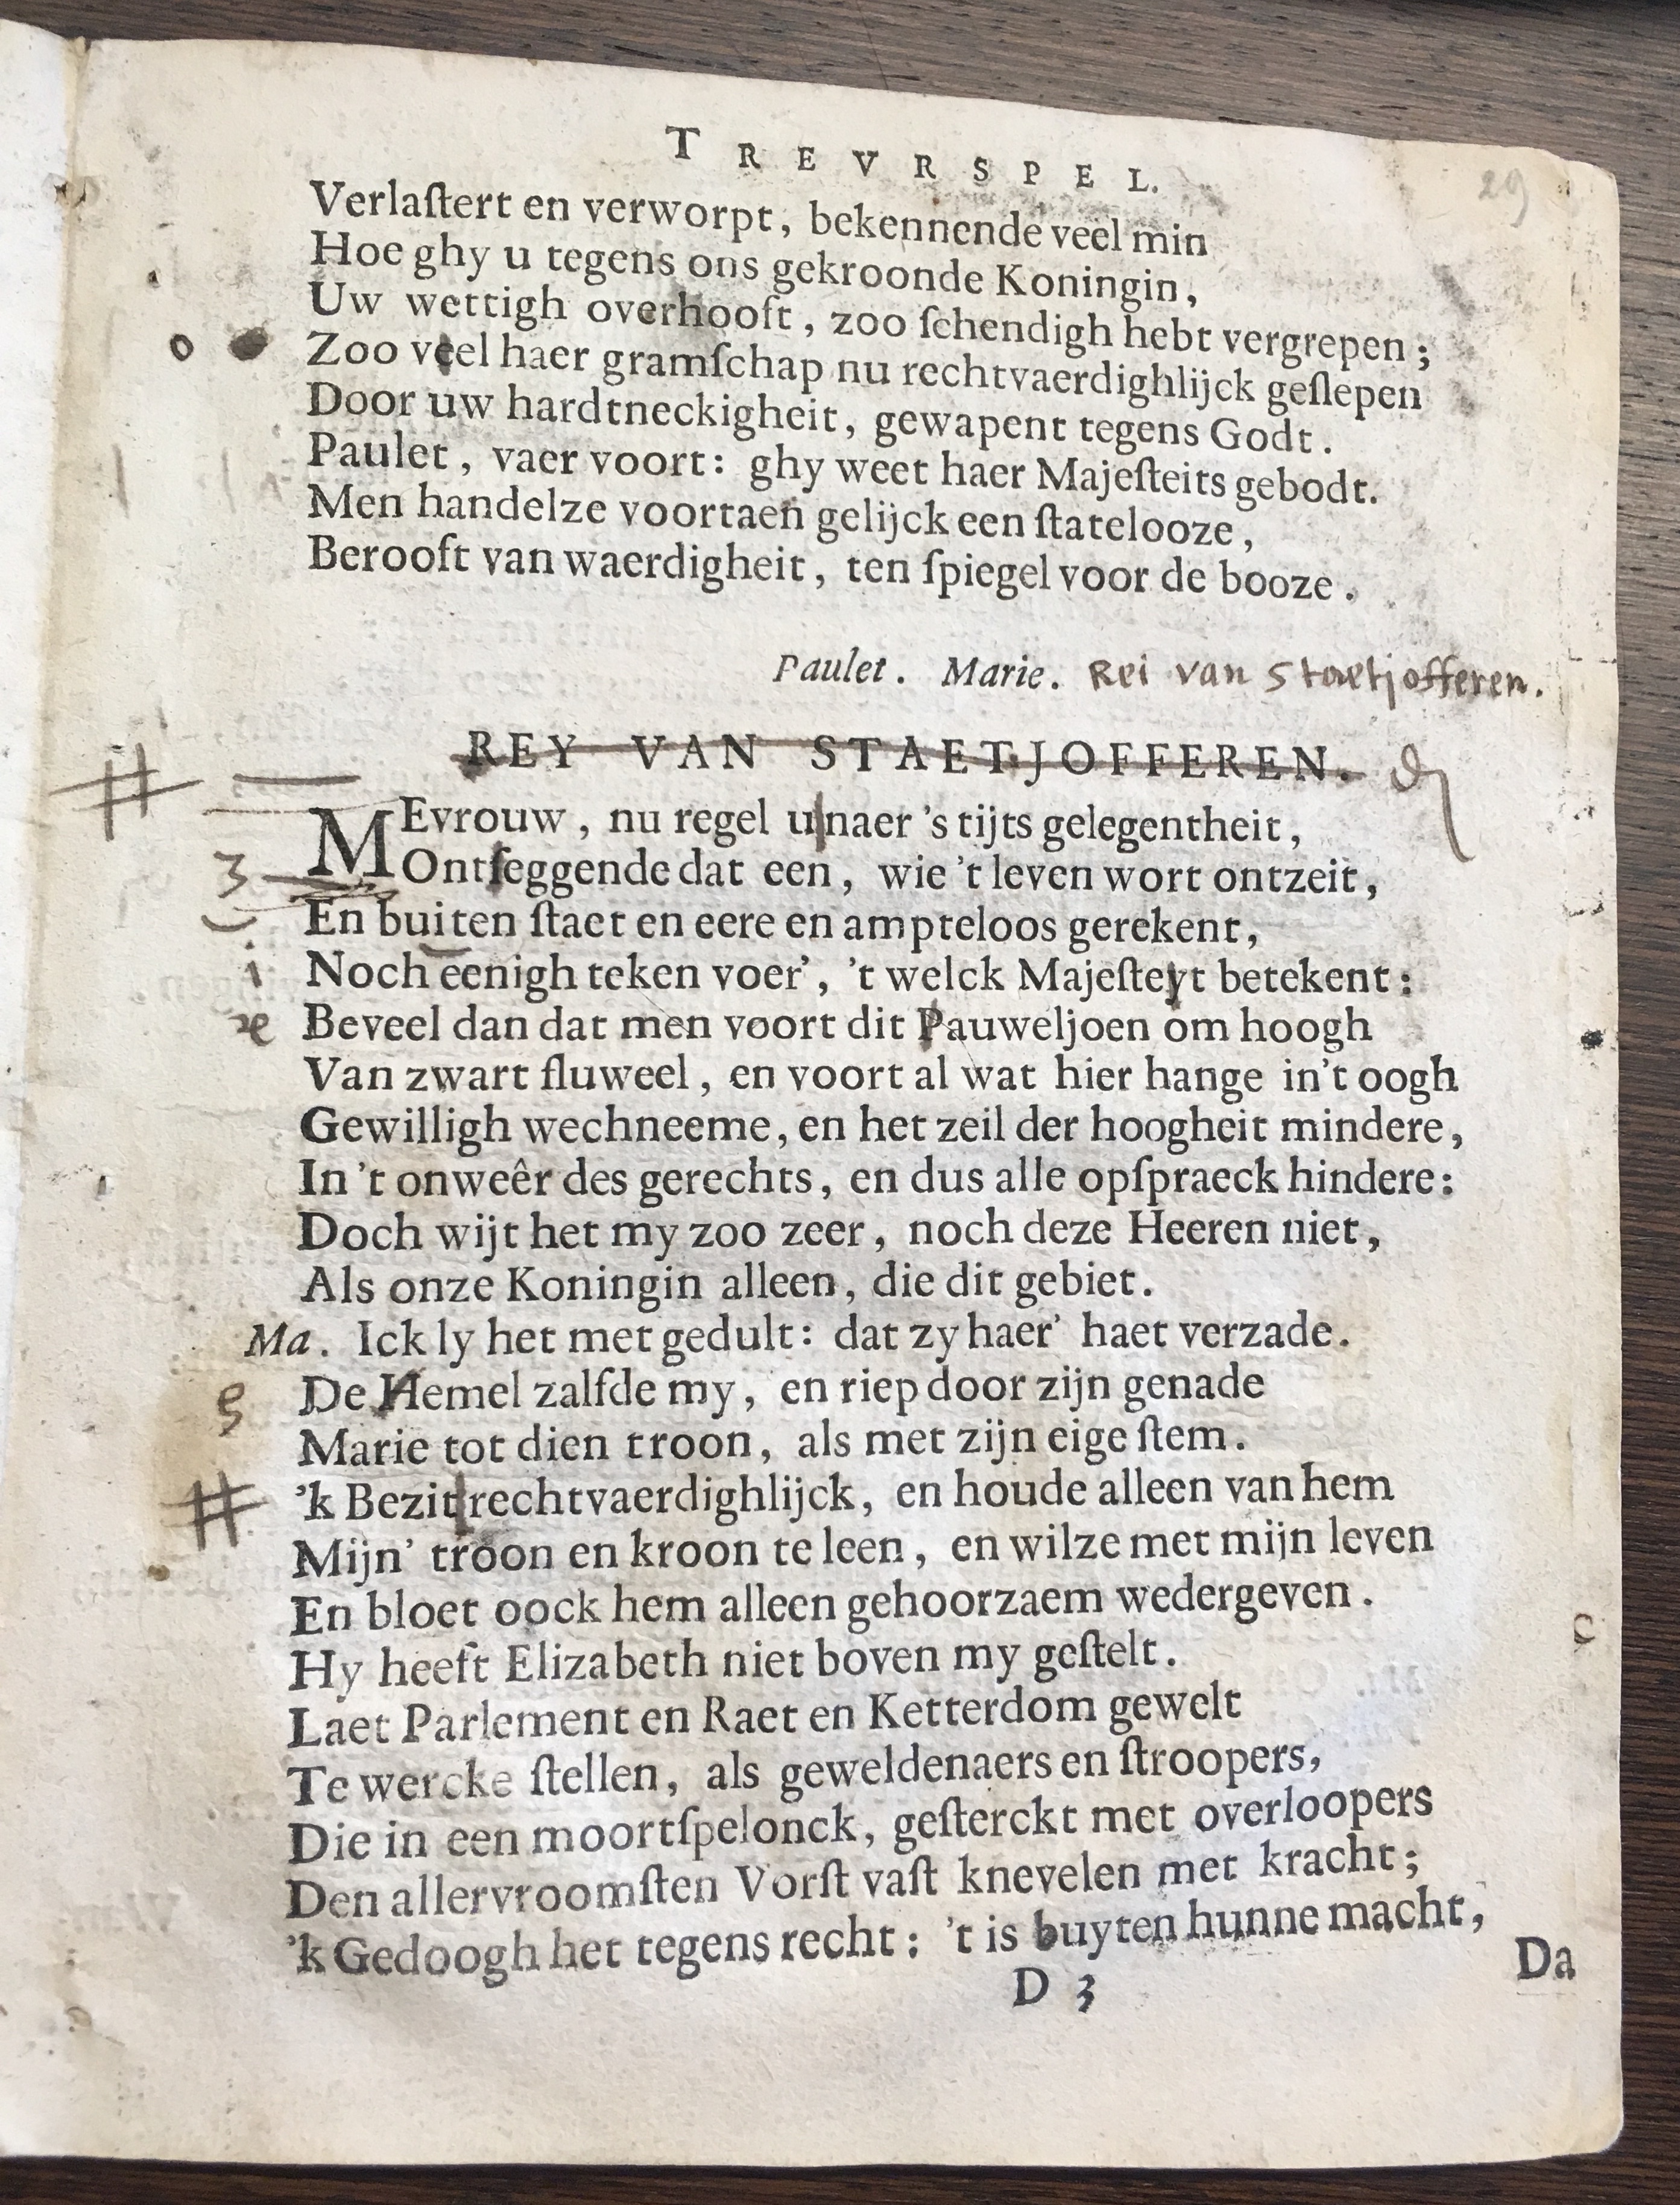 TREVRSPEL.
29
Verlaſtert en verworpt, bekennende veel min
Hoe ghy u tegens ons gekroonde Koningin,
Uw wettigh overhooft, zoo ſchendigh hebt vergrepen;
o Zoo veel haer gramſchap nu rechtvaerdighlijck geſlepen
Door uw hardtneckigheit, gewapent tegens Godt.
Paulet, vaer voort: ghy weet haer Majeſteits gebodt.
Men handelze voortaen gelijck een ſtatelooze,
Berooft van waerdigheit, ten ſpiegel voor de booze.
Paulet. Marie. Rei van Staetjofferen.
REY VAN STAETJOFFEREN.
# MEvrouw, nu regel u naer 's tijts gelegentheit,
3 Ontſeggende dat een, wie 't leven wort ontzeit,
En buiten ſtaet en eere en ampteloos gerekent,
i Noch eenigh teken voer', 't welck Majeſteyt betekent:
Beveel dan dat men voort dit Pauweljoen om hoogh
Van zwart fluweel, en voort al wat hier hange in't oogh
Gewilligh wechneeme, en het zeil der hoogheit mindere,
In 't onweêr des gerechts, en dus alle opſpraeck hindere:
Doch wijt het my zoo zeer, noch deze Heeren niet,
Als onze Koningin alleen, die dit gebiet.
Ma. Ick ly het met gedult: dat zy haer' haet verzade.
De Hemel zalfde my, en riep door zijn genade
Marie tot dien troon, als met zijn eige ſtem.
# 'k Bezit rechtvaerdighlijck, en houde alleen van hem
Mijn' troon en kroon te leen, en wilze met mijn leven
En bloet oock hem alleen gehoorzaem wedergeven.
Hy heeft Elizabeth niet boven my geſtelt.
Laet Parlement en Raet en Ketterdom gewelt
Te wercke ſtellen, als geweldenaers en ſtroopers,
Die in een moortſpelonck, geſterckt met overloopers
Den allervroomſten Vorſt vaſt knevelen met kracht;
'k Gedoogh het tegens recht: 't is buyten hunne macht,
D 3
Da